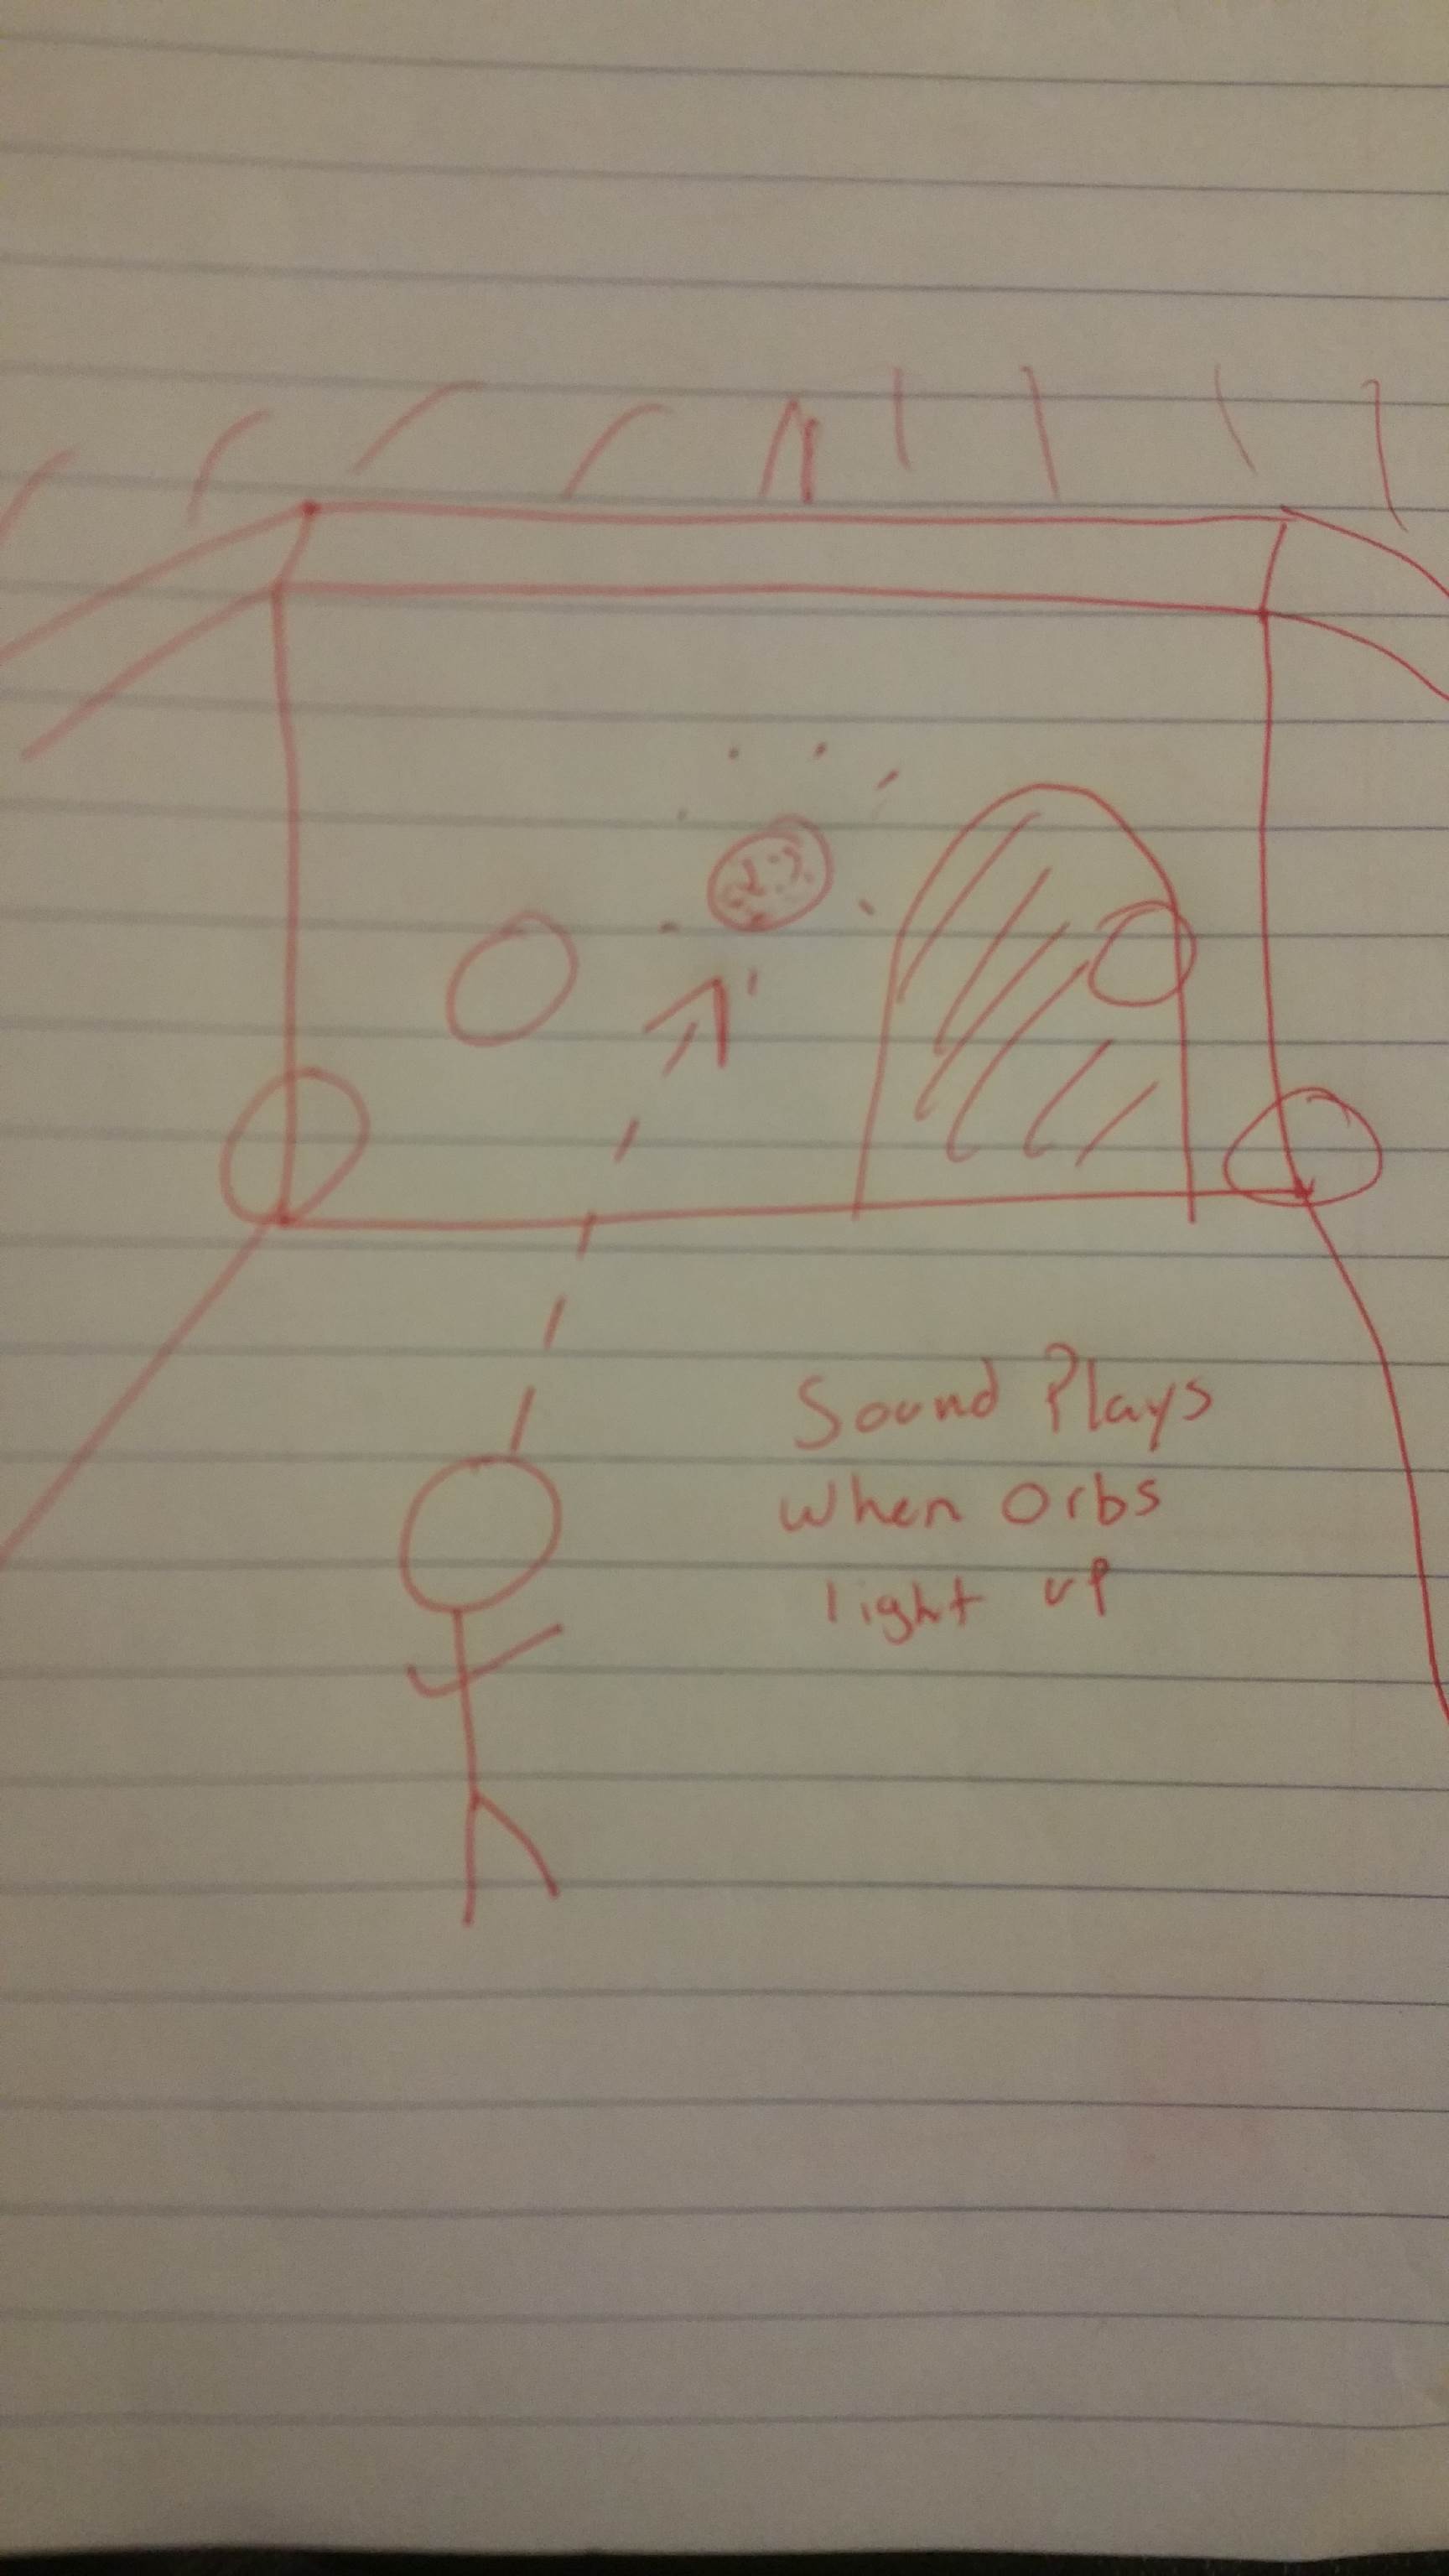 Sound Plays
when Orbs
light up